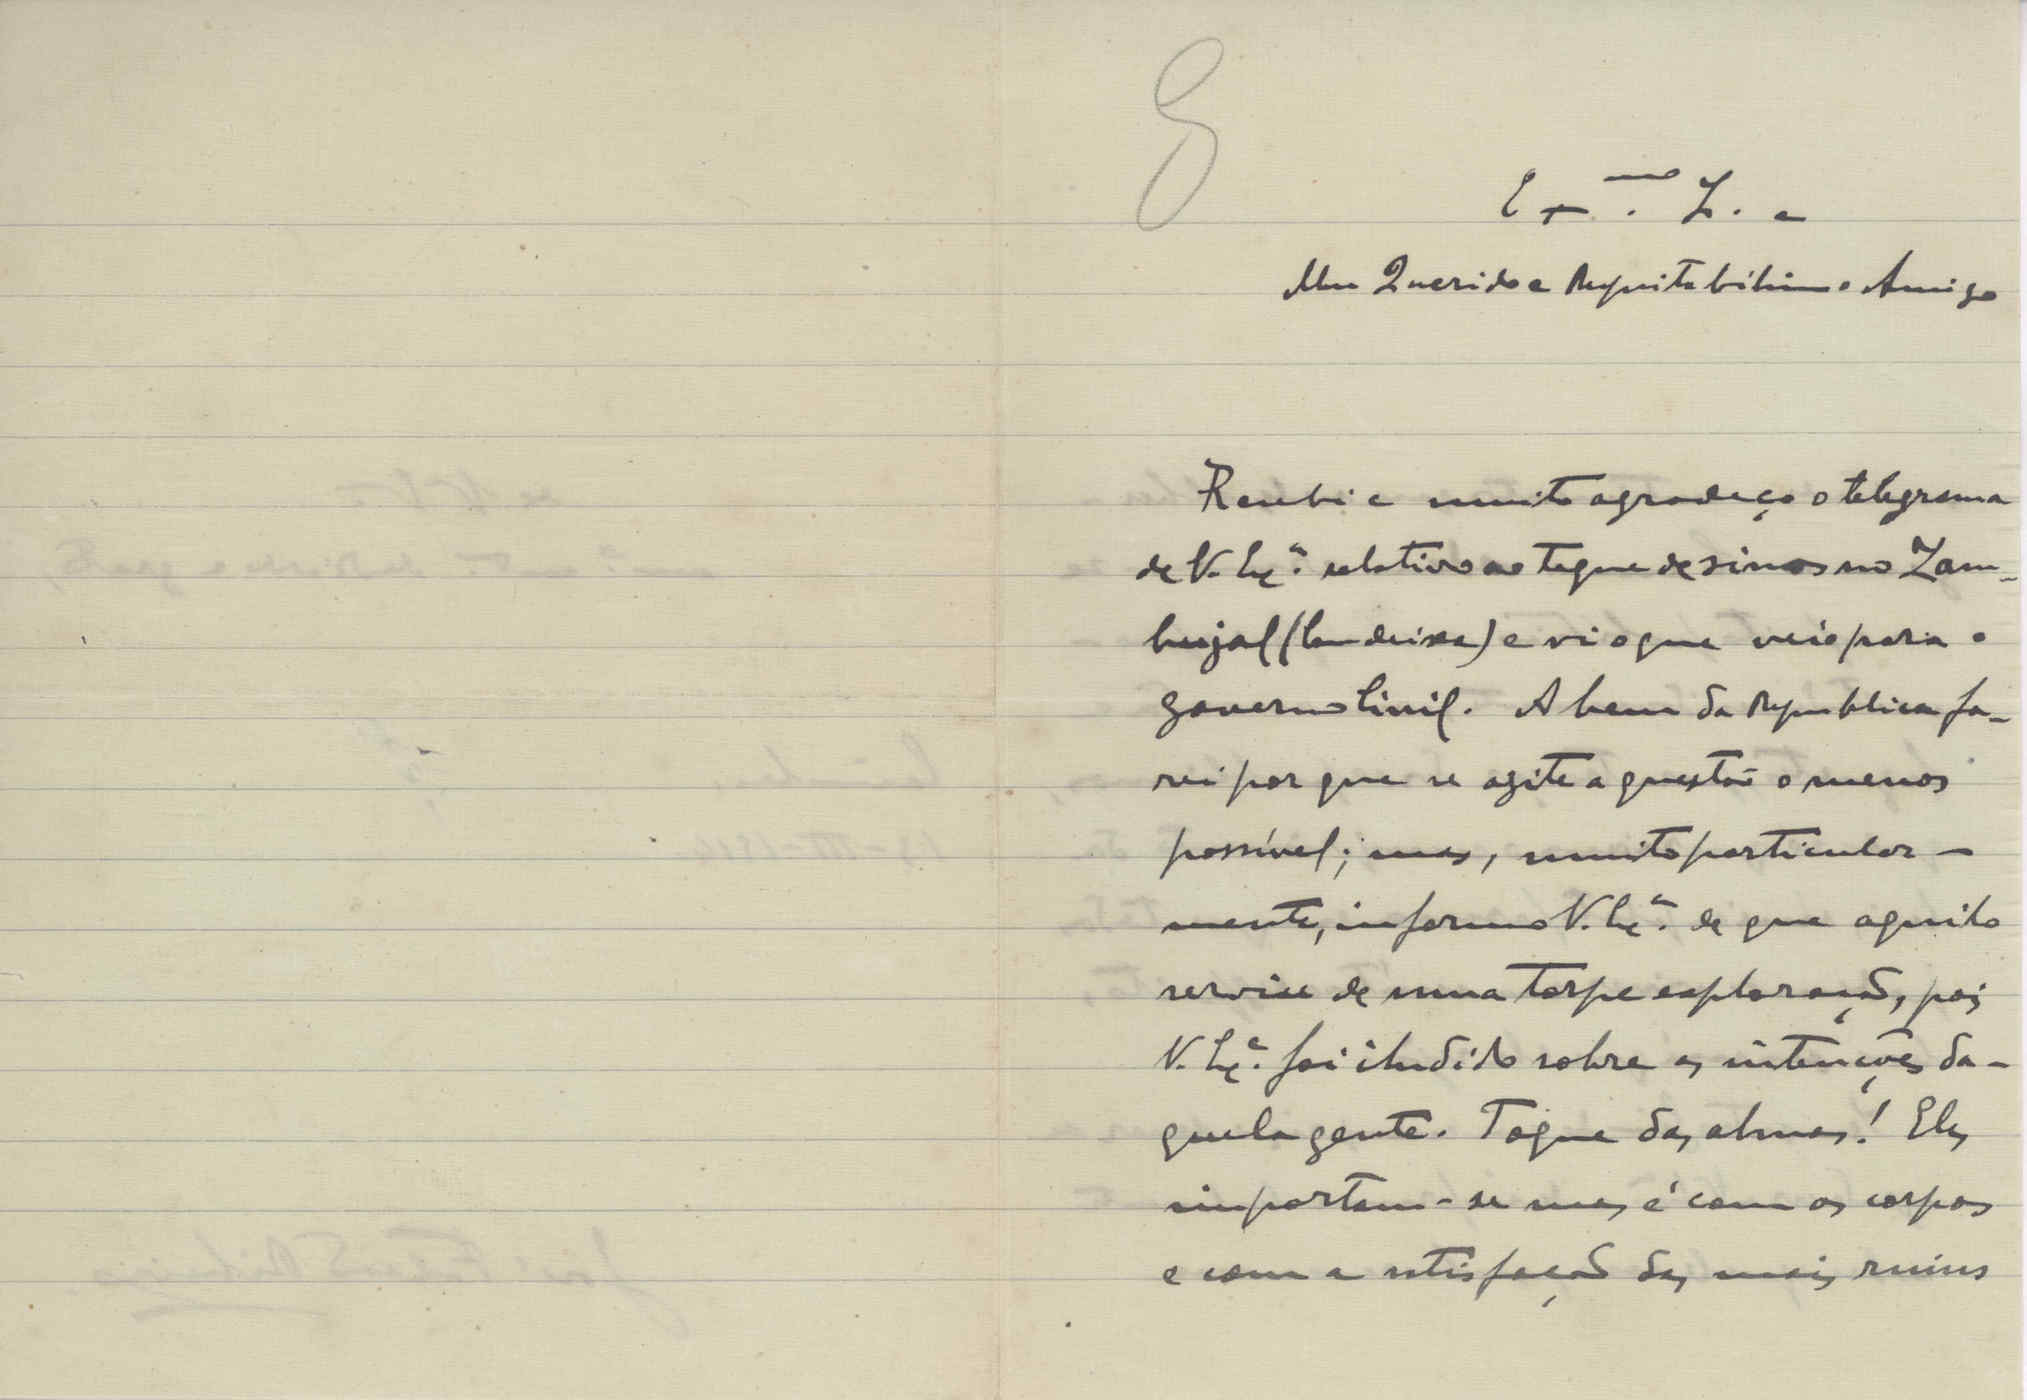 8
Exmo. Sr. e
Meu Querido e Respeitabilissimo Amigo
Recebi e muito agradeço o telegrama
de V. Exª. relativo ao toque de sinos no Zam-
bujal (Condeixa) e vi o que veio para o
Governo Civil. A bem da Republica fa-
rei por que se agite a questão o menos
possível; mas, muito particular-
mente, informo V. Exª. de que aquilo
servise de uma torpe exploração, pois
V. Exª. foi iludido sobre as intenções da-
quela gente. Toque das almas! Eles
importam-se mas é com os corpos
e com a satisfação das mais ruins